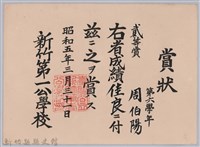 賞狀
第六學年
周伯陽
貳等賞
右者成績佳良ニ付
茲ニ之ヲ賞ス
昭和五年三月三十一日
新竹第一公學校